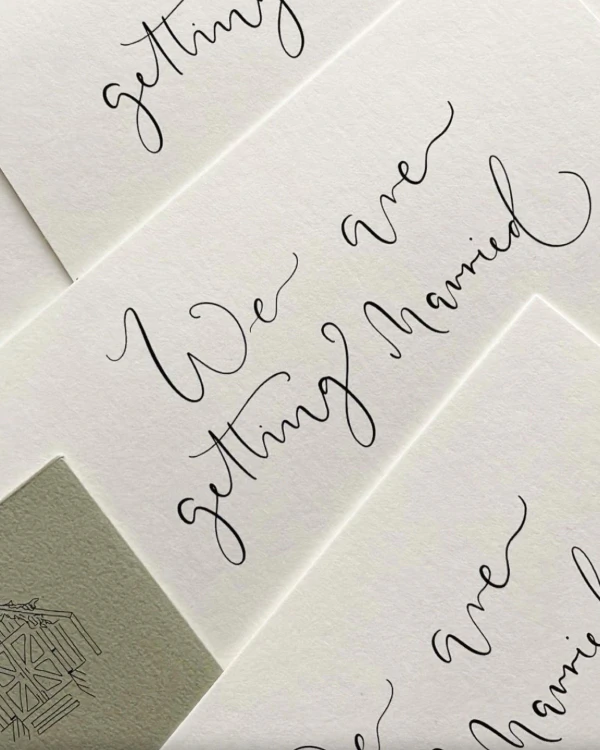 getting
We are
getting Married
are
We
Married